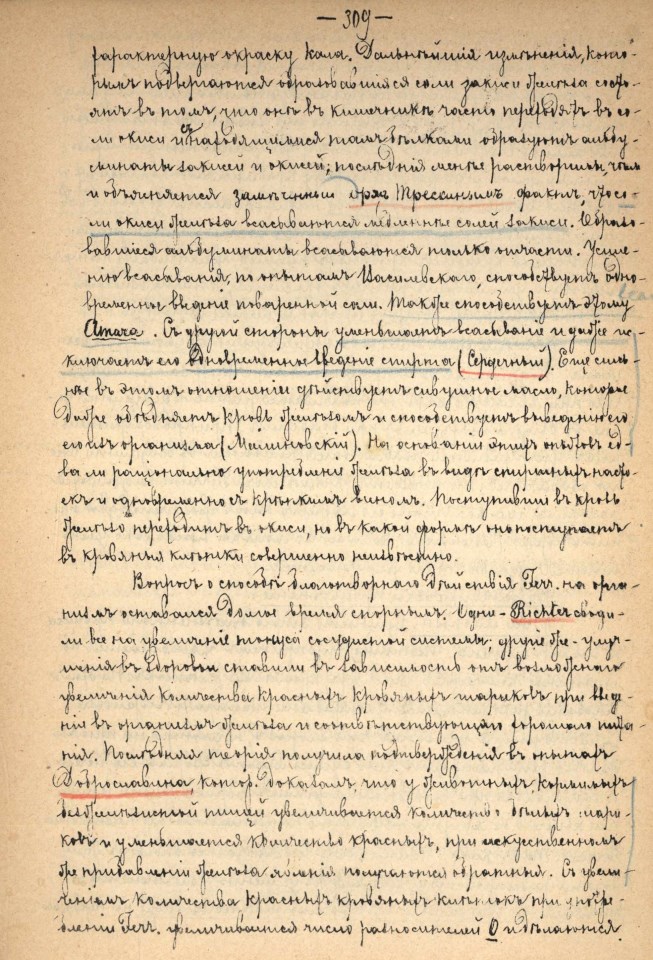 — 309 —
характерную окраску кала. Дальнѣйшія измѣненія, кото-
рымъ подвергаются образовавшіяся соли закиси желѣза состо-
ятъ въ томъ, что онѣ въ кишечникѣ часто переходятъ въ со-
ли окиси и съ находящимися тамъ бѣлками образуютъ альбу-
минаты закисей и окисей; послѣднія менѣе растворимы, чѣмъ
и объясняется замѣченный Трессинымъ фактъ, что со-
ли окиси желѣза всасываются медленнѣе солей закиси. Образо-
вавшіеся альбуминаты всасываются только отчасти. Усиле-
нію всасыванія, по опытамъ Василевскаго, способствуетъ одно-
временное введеніе поваренной соли. Также способствуютъ этому
Amara. Съ другой стороны уменьшаетъ всасываніе и даже ис-
ключаетъ его одновременное введеніе спирта (Сердечный). Еще силь-
нѣе въ этомъ отношеніи дѣйствуетъ сивушное масло, которое
даже обѣдняетъ кровь желѣзомъ и способствуетъ выведенію его
его изъ организма (Малиновскій). На основаніи этихъ опытовъ ед-
ва ли раціонально употребленіе желѣза въ видѣ спиртныхъ насто-
екъ и одновременно съ крѣпкимъ виномъ. Поступившее въ кровь
желѣзо переходитъ въ окиси, но въ какой формѣ оно поступаетъ
въ кровяныя клѣтки совершенно неизвѣстно.
Вопросъ о способѣ благотворнаго дѣйствія Ferr. на орга-
низмъ оставался долгое время спорнымъ. Одни - Richter своди-
ли все на увеличеніе тонуса сосудистой системы; другіе же - улуч-
шенія въ здоровьи ставили въ зависимость отъ возможнаго
увеличенія количества красныхъ кровяныхъ шариковъ при введе-
ніи въ организмъ желѣза и соотвѣтствующаго хорошаго пита-
нія. Послѣдняя теорія получила подтвержденія въ опытахъ
Доброславина, котор. доказалъ, что у животныхъ кормимыхъ
безжелѣзистой пищей увеличивается количество бѣлыхъ шари-
ковъ и уменьшается количество красныхъ, при искуственномъ
же прибавленіи желѣза явленія получаются обратныя. Съ увели-
ченіемъ количества красныхъ кровяныхъ клѣтокъ при употре-
бленіи Ferr. увеличивается число разносителей O и дѣлаются